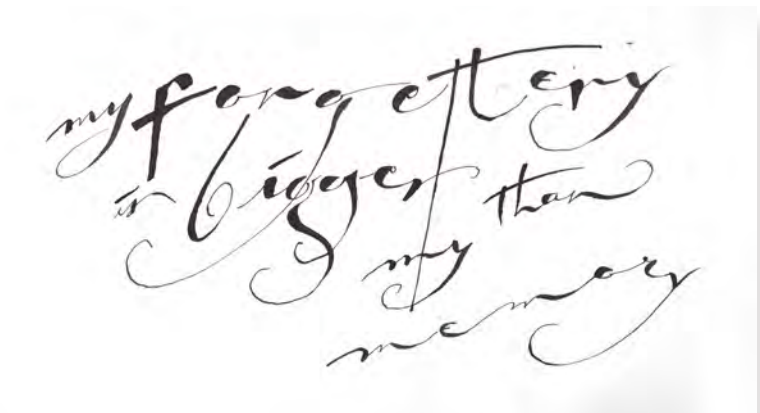 my forgettery
is bigger than
my
memory